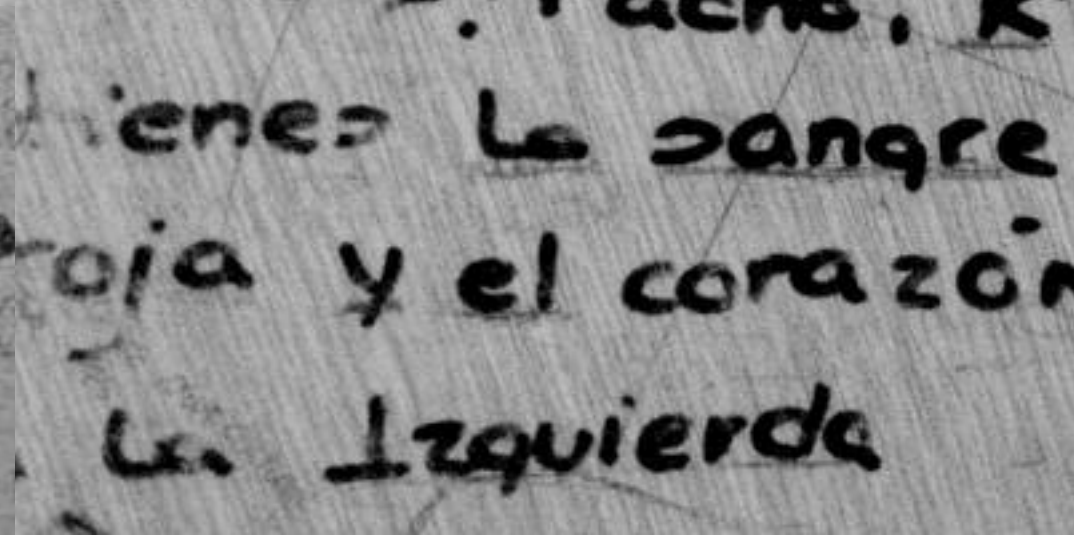 tienes la sangre
roja y el corazón
la Izquierda